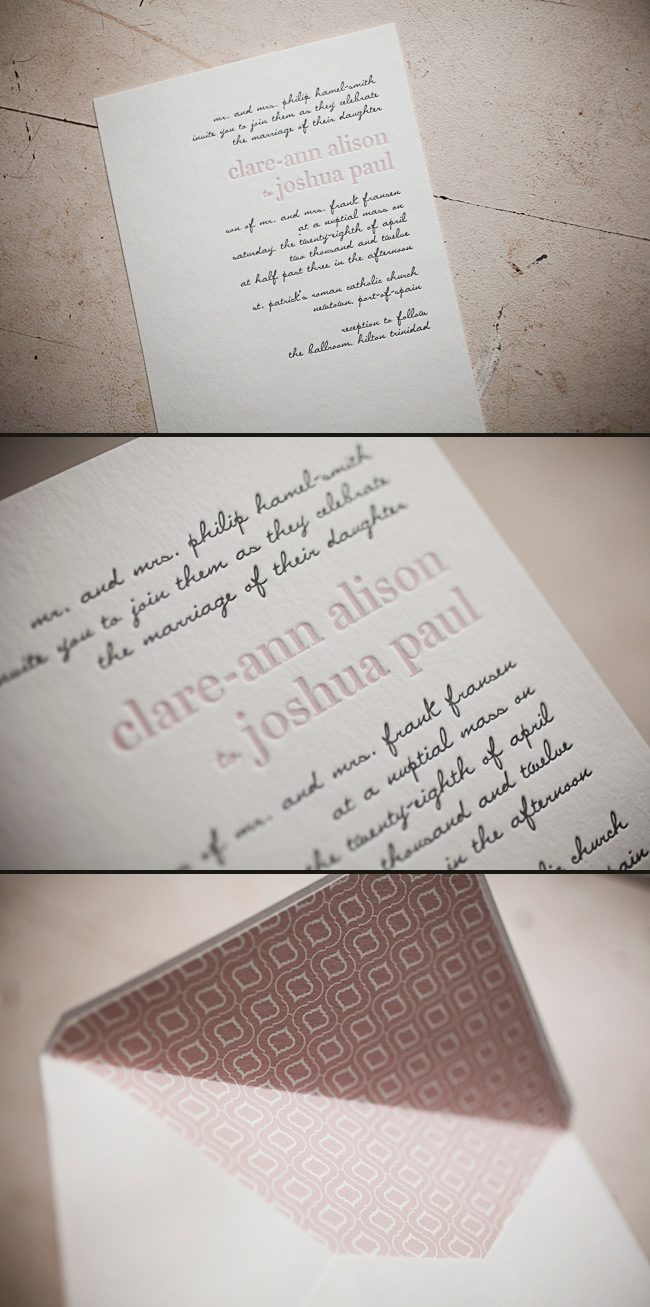 mr. and mrs. philip hamel-smith
invite you to join them as they celebrate
the marriage of their daughter
clare-ann alison
to joshua paul
son of mr. and mrs. frank fransen
at a nuptial mass on
saturday, the twenty-eighth of april
two thousand and twelve
at half past three in the afternoon
st. patrick's roman catholic church
newtown, port-of-spain
reception to follow
the ballroom, hilton trinidad
mr. and mrs. philip hamel-smith
invite you to join them as they celebrate
the marriage of their daughter
clare-ann alison
to joshua paul
of mr. and mrs. frank fransen
at a nuptial mass on
the twenty-eighth of april
thousand and twelve
in the afternoon
church